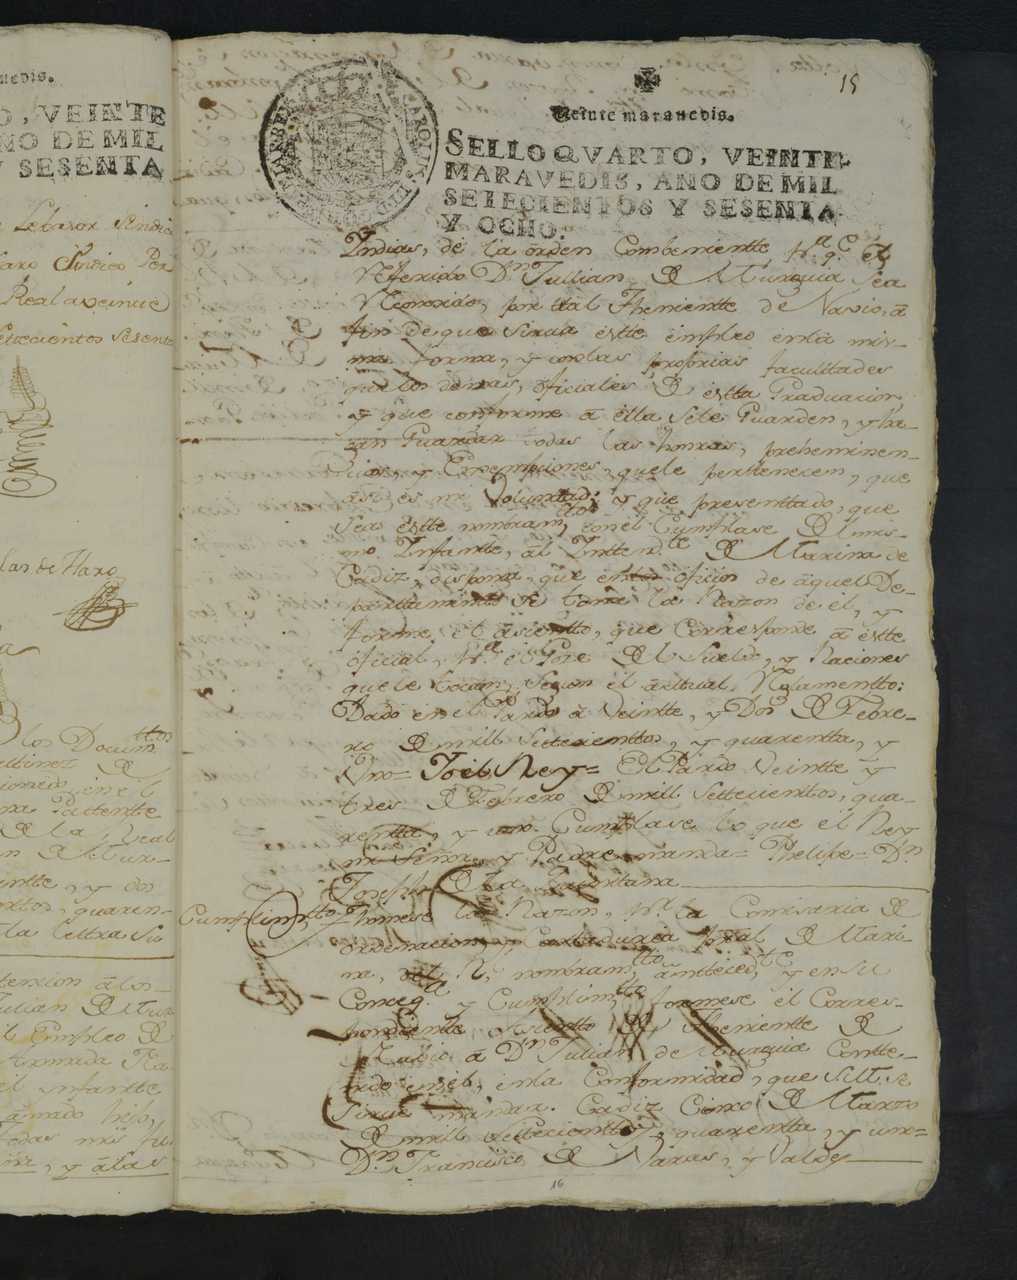 uedis.
O, VEINTE
NO DE MIL
Y SESENTA
Real a veinue
las de Haro
los Docum.ttos
na Patente
de la Real
quaren-
la lettra
tencion
Julian de
Empleo de
Armada
el infantte
amado hijo,
todas mis
y a las
15
Veinte marauedis.
SELLO QVARTO, VEINTE
MARAVEDIS, AÑO DE MIL
SETECIENTOS Y SESENTA
Y OCHO.
CAROLUS III D G
Yndias, de la orden Combenientte, p.a q.e el
Refferido D.n Jullian de Murguia sea
Reconozido, por tal Thenientte de Navio, a
fin de que sirua estte empleo en la mis-
ma forma, y con las proprias facultades
que los demas, oficiales de estta Graduacion,
y que conforme a ella se le Guarden, y ha-
gan Guardar todas las honras, preheminen-
cias, y Exempciones, que le perttenecen, que
asi es mi Voluntad; y que presenttado, que
sea estte nombram.tto con el Cumplase del mis-
mo Infantte, al Yntend.te de Marina de
Cadiz, disponga, que en los oficios de aquel De-
parttamento se tome la Razon de el, y
forme, el asientto, que Corresponde a estte
oficial, p.a el Goze del Sueldo, y Raciones
que le tocan, segun el acttual Reglamentto:
Dado en el Pardo a Veintte, y Dos de Febre-
ro de mill settecienttos, y quarenta, y
Uno= Yo el Rey= El Pardo Veintte y
tres de Febrero de mill settecientos, qua-
rentta, y uno. Cumplase lo que el Rey
mi Señor, y Padre manda= Phelipe= D.n
Joseph de la Quintana
Cumplim.tto
Thomese la Razon, p.r la Comisaria de
ordenacion, y Conttaduria pral de Mari-
na, del R.l nombram.tto antteced.te, y en su
Conseq.a y Cumplim.to formese el Corres-
pondiente Asientto de Thenientte de
Nauio a D.n Julian de Murguia Contte-
nido en el, en la Conformidad, que S.M. se
sirue mandar. Cadiz Cinco de Marzo
de mill settecienttos, y quarentta, y un=
D.n Francisco de Varas, y Valdes
16